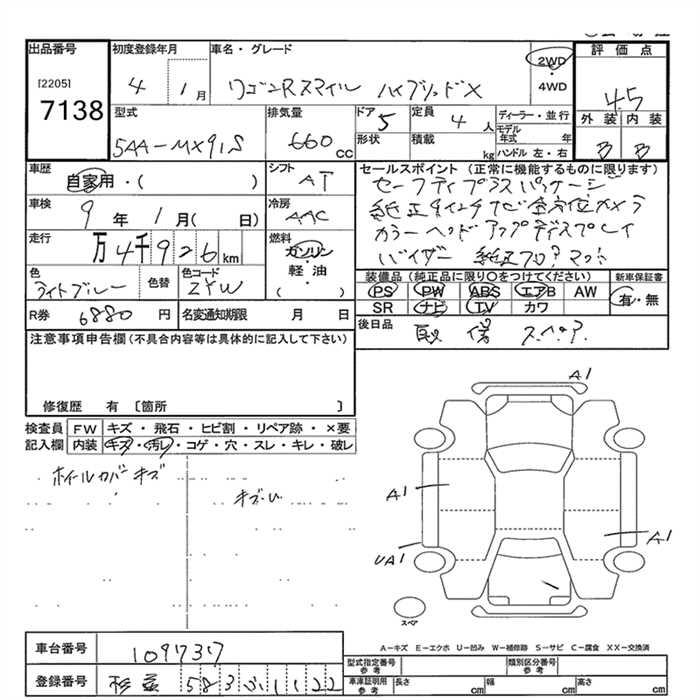 出品番号 初度登録年月 車名・グレード 2WD・4WD 評価点
[2205] 7138 4 1月 ワゴンRスマイル ハイブリッドX 4.5
型式 排気量 ドア 5 定員 4人 ディーラー・並行 外装 内装
5AA-MX91S 660cc 形状 積載 kg モデル年式 年 B B
ハンドル 左・右
車歴 シフト セールスポイント(正常に機能するものに限ります)
自家用・( ) AT セーフティプラスパッケージ
車検 冷房 純正9インチナビ全方位カメラ
9年1月(日) AAC カラーヘッドアップディスプレイ
走行 燃料 バイザー 純正フロアマット
万4千926km ガソリン・軽油 ( )
装備品(純正品に限り○をつけてください) 新車保証書
色 色替 色コード PS PW ABS エアB AW 有・無
ライトブルー ZYW SR ナビ TV カワ
R券 6880円 名変通知期限 月 日 後日品 取 保 スペア
注意事項申告欄(不具合内容等は具体的に記入して下さい)
修復歴 有 〔箇所 〕
検査員記入欄 FW キズ・飛石・ヒビ割・リペア跡・×要
内装 キズ・汚レ・コゲ・穴・スレ・キレ・破レ
ホイールカバーキズ
キズ・ヒ
A1
A1
A1
UA1
スペア
A-キズ E-エクボ U-凹み W-補修跡 S-サビ C-腐食 XX-交換済
車台番号 109737
登録番号 583 1122
型式指定番号 参考 類別区分番号 参考
車庫証明用 参考 長さ cm 幅 cm 高さ cm